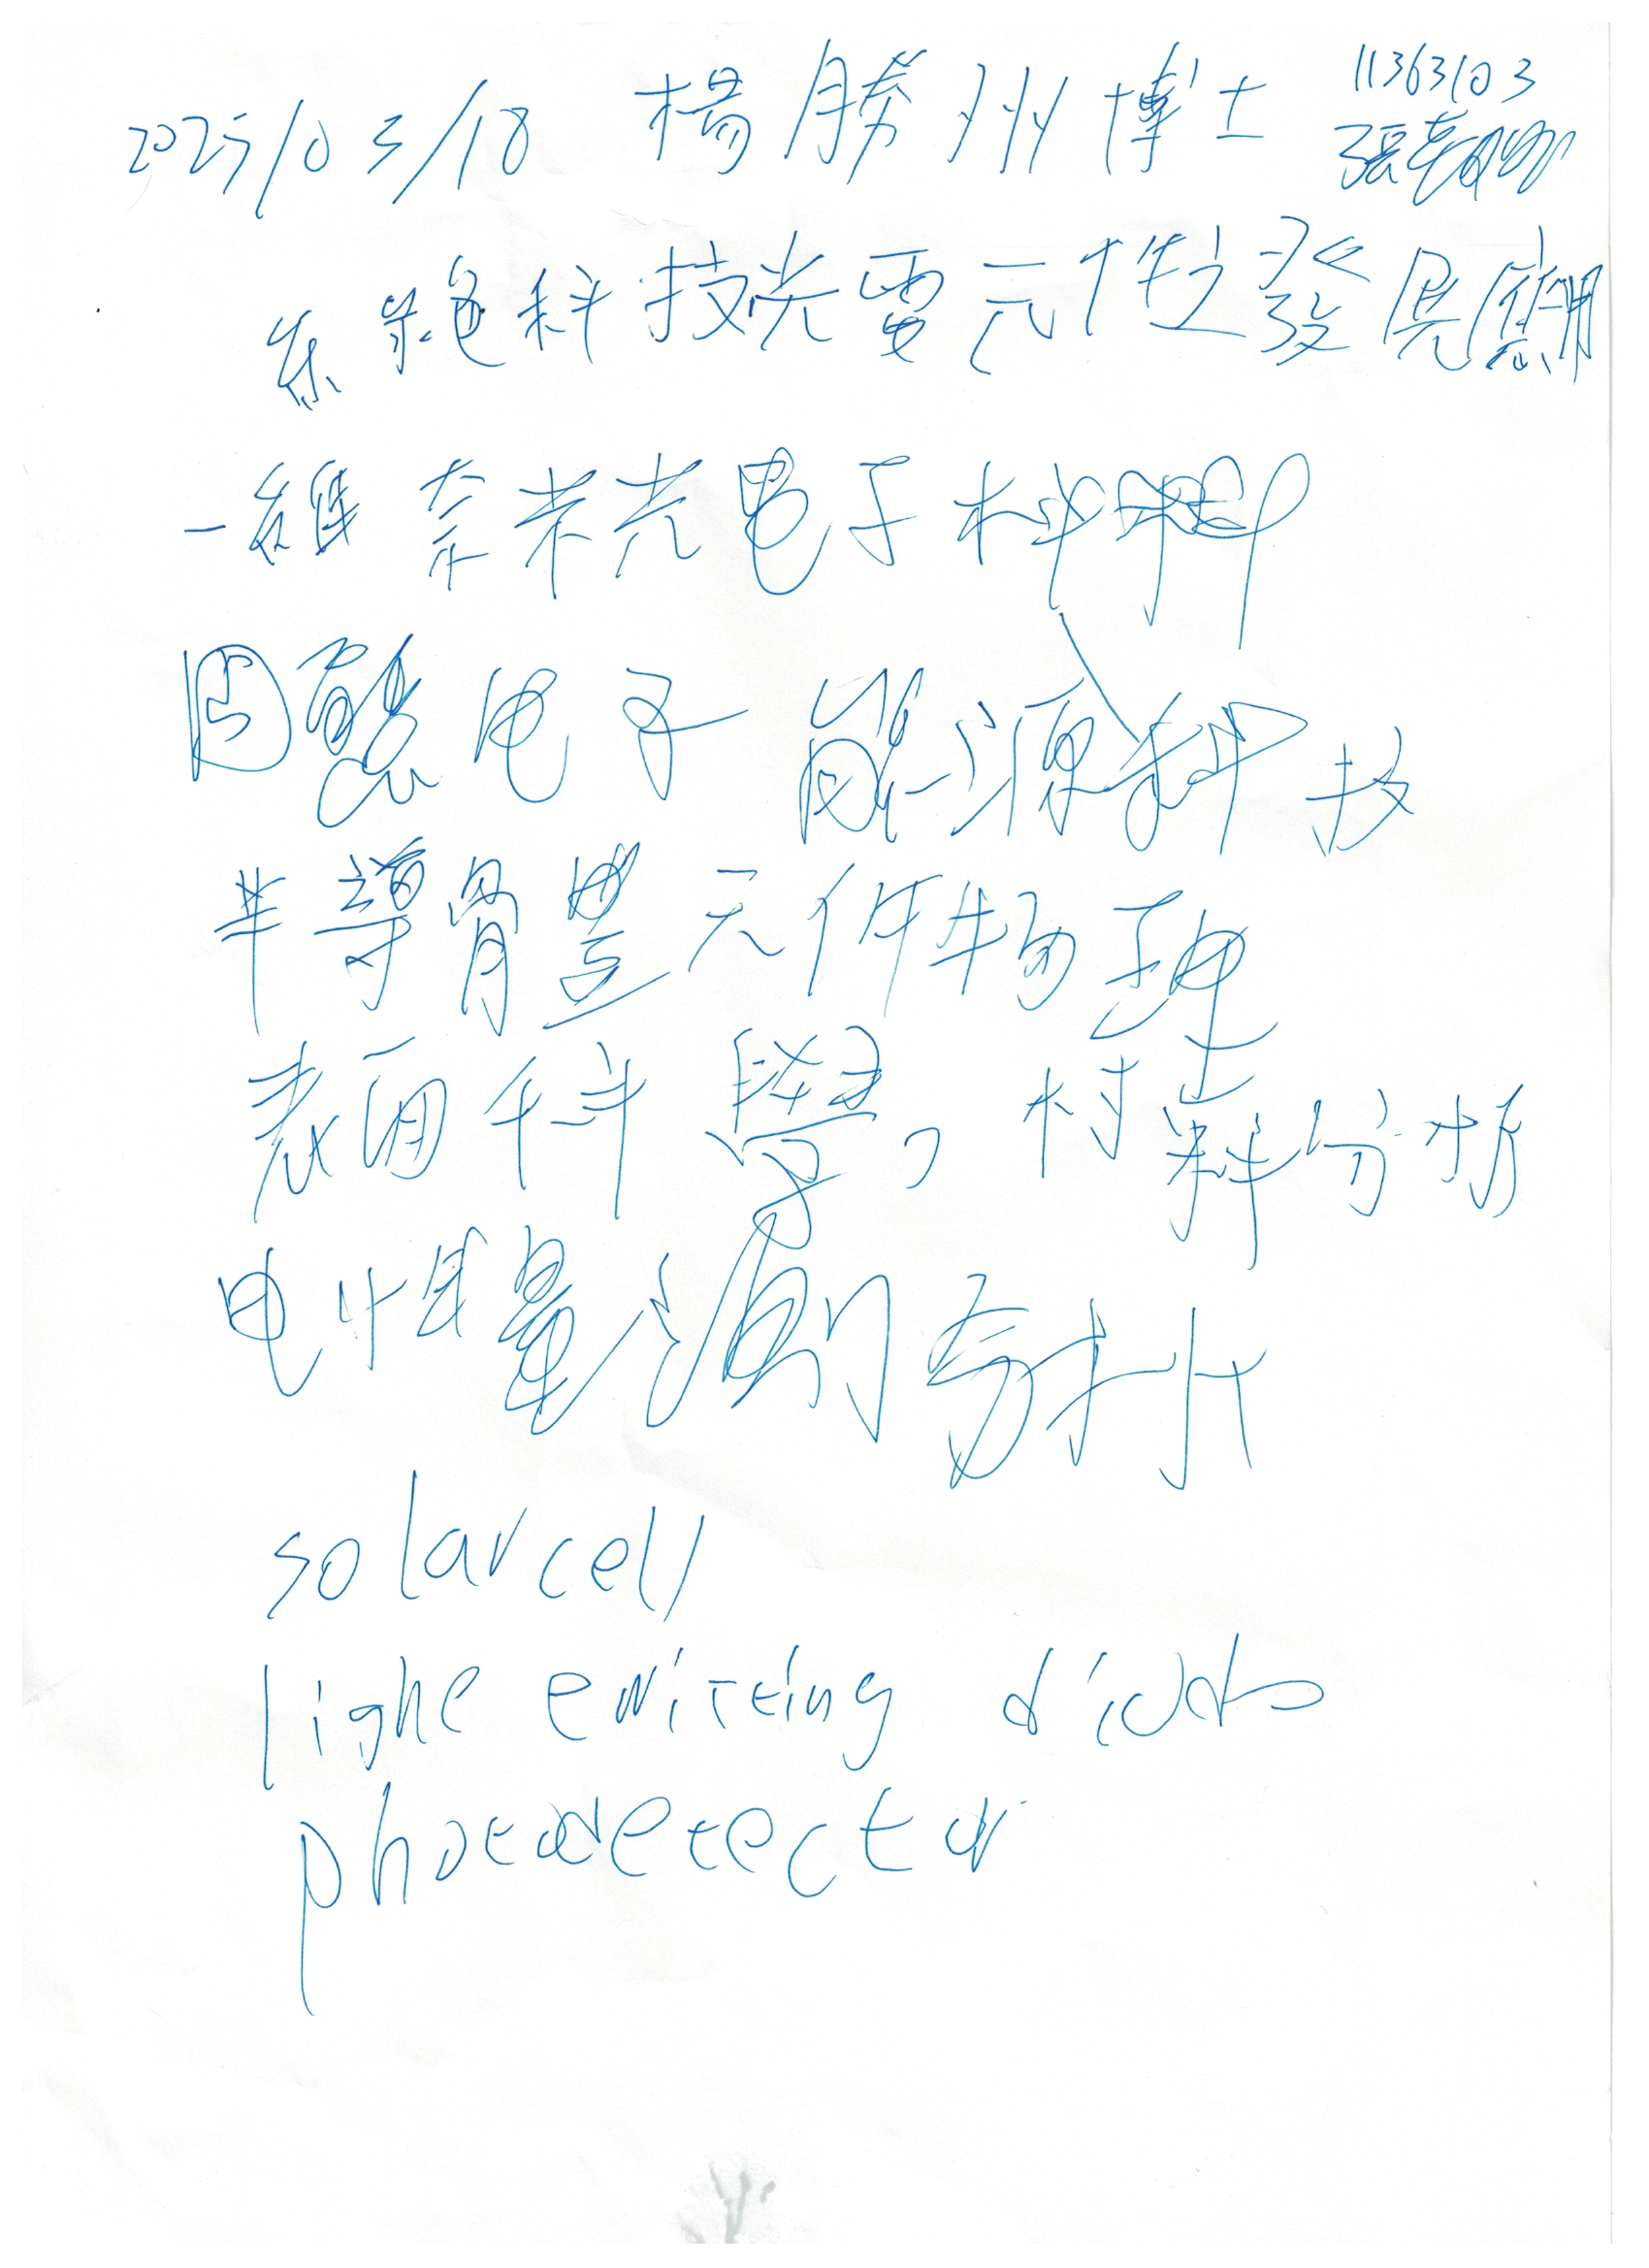 2025/03/18 楊勝州博士 11363103
綠色科技光電元件之發展應用
一維奈米光電子材料
固態电子 能源科技
半導體元件物理
表面科學,材料分析
电性量測分析
solar cell
light emitting diode
photodetector